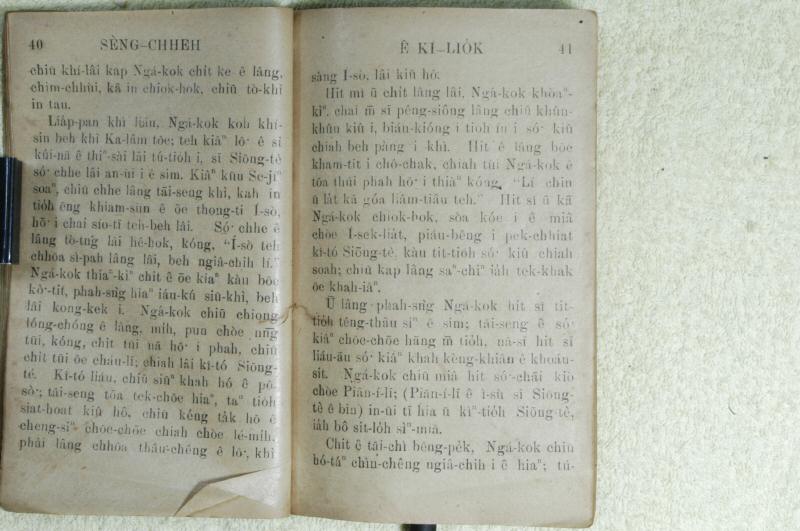 40 SÈNG-CHHEH
chiū khí-lâi kap Ngá-kok chit ke ê lâng,
chim-chhùi, kā in chiok-hok, chiū tò-khì
in tau.
Lia̍p-pan khì liáu, Ngá-kok koh khí-
sin beh khì Ka-lâm tōe; teh kiâⁿ lō͘ ê sî
kúi-nā ê thiⁿ-sài lâi tú-tio̍h i, sī Siōng-tè
só͘ chhe lâi an-ùi i ê sim. Kiâⁿ kàu Se-jíⁿ
soaⁿ, chiū chhe lâng tāi-seng khì, kah in
tio̍h ēng khiam-sùn ê ōe thong-ti Í-sò,
hō͘ i chai sío-tī teh-beh lâi. Só͘ chhe ê
lâng tò-tńg lâi hê-hok, kóng, "Í-sò teh
chhōa sì-pah lâng lâi, beh ngiâ-chih lí."
Ngá-kok thiaⁿ-kìⁿ chit ê ōe kiaⁿ kàu bōe
kò͘-tit, phah-sǹg hiaⁿ iáu-kú siū-khì, beh
lâi kong-kek i. Ngá-kok chiū chiong
lóng-chóng ê lâng, mi̍h, pun chòe nn̄g
tūi, kóng, chit tūi nā hō͘ i phah, chiū
chit tūi ōe cháu-lī; chiah lâi kî-tó Siōng-
tè. Kî-tó liáu, chiū siūⁿ khah hó ê pō͘-
sò͘; tāi-seng tōa tek-chōe hiaⁿ, taⁿ tio̍h
siat-hoat kiû hô, chiū kéng ta̍k hō ê
cheng-siⁿ chōe-chōe chiah chòe lé-mi̍h,
phài lâng chhōa thâu-chêng ê lō͘, khì
Ê KÌ-LIO̍K 41
sàng Í-sò, lâi kiû hô.
Hit mî ū chit lâng lâi, Ngá-kok khòaⁿ-
kìⁿ, chai m̄ sī pêng-siông lâng chiū khûn-
khûn kiû i, bián-kióng i tio̍h ín i só͘ kiû
chiah beh pàng i khì. Hit ê lâng bōe
kham-tit i chó-chak, chiah tùi Ngá-kok ê
tōa thúi phah hō͘ i thiàⁿ kóng, "Lí chin
ū la̍t kā góa liâm-tiâu teh." Hit sî ū kā
Ngá-kok chiok-hok, sòa kóe i ê miâ
chòe Í-sek-lia̍t, piáu-bêng i pek-chhiat
kî-tó Siōng-tè, kàu tit-tio̍h só͘ kiû chiah
soah; chiū kap lâng saⁿ-chìⁿ ia̍h tek-khak
ōe khah-iâⁿ.
Ū lâng phah-sǹg Ngá-kok hit sî tit-
tio̍h têng-thâu siⁿ ê sim; tāi-seng ê só͘
kiâⁿ chōe-chōe hāng m̄ tio̍h, nā-sī hit sî
liáu-āu só͘ kiâⁿ khah kèng-khiân ê khoán-
sit. Ngá-kok chiū miâ hit só͘-chāi kiò
chòe Piān-í-lī; (Piān-í-lī ê ì-sù sī Siōng-
tè ê bīn) in-ūi tī hia ū kìⁿ-tio̍h Siōng-tè,
ia̍h bô sit-lo̍h sìⁿ-miā.
Chit ê tāi-chì bêng-pe̍k, Ngá-kok chiū
hó-táⁿ chìn-chêng ngiâ-chih i ê hiaⁿ; tú-